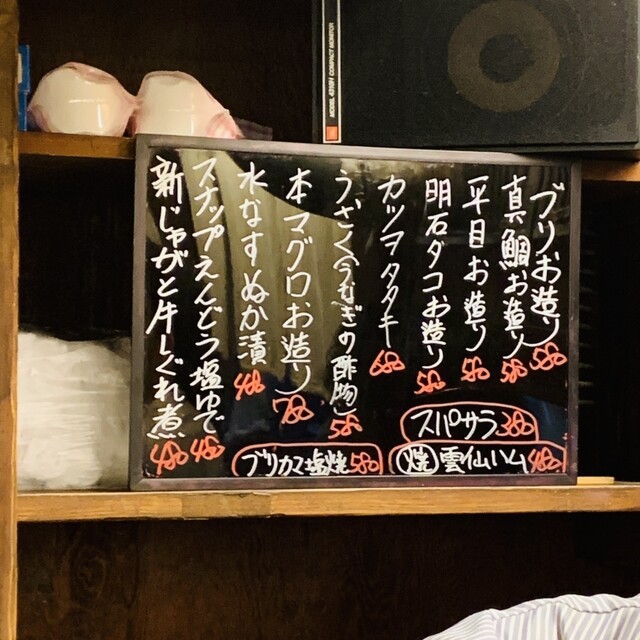 ブリお造り 580
真鯛お造り 580
平目お造り 580
明石ダコお造り 580
カツヲタタキ 680
うざく(うなぎの酢物) 580
本マグロお造り 780
水なすぬか漬 480
スナップえんどう塩ゆで 480
新じゃがと牛しぐれ煮 480
スパサラ 380
焼 雲仙ハム 480
ブリカマ塩焼 580
JBL
MODEL 4312M COMPACT MONITOR